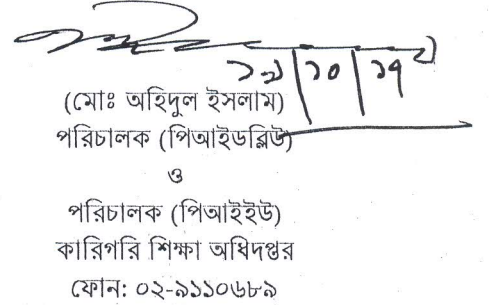 ১৯|১০|১৭
(মোঃ অহিদুল ইসলাম)
পরিচালক (পিআইডব্লিউ)
ও
পরিচালক (পিআইইউ)
কারিগরি শিক্ষা অধিদপ্তর
ফোন: ০২-৯১১০৬৮৯